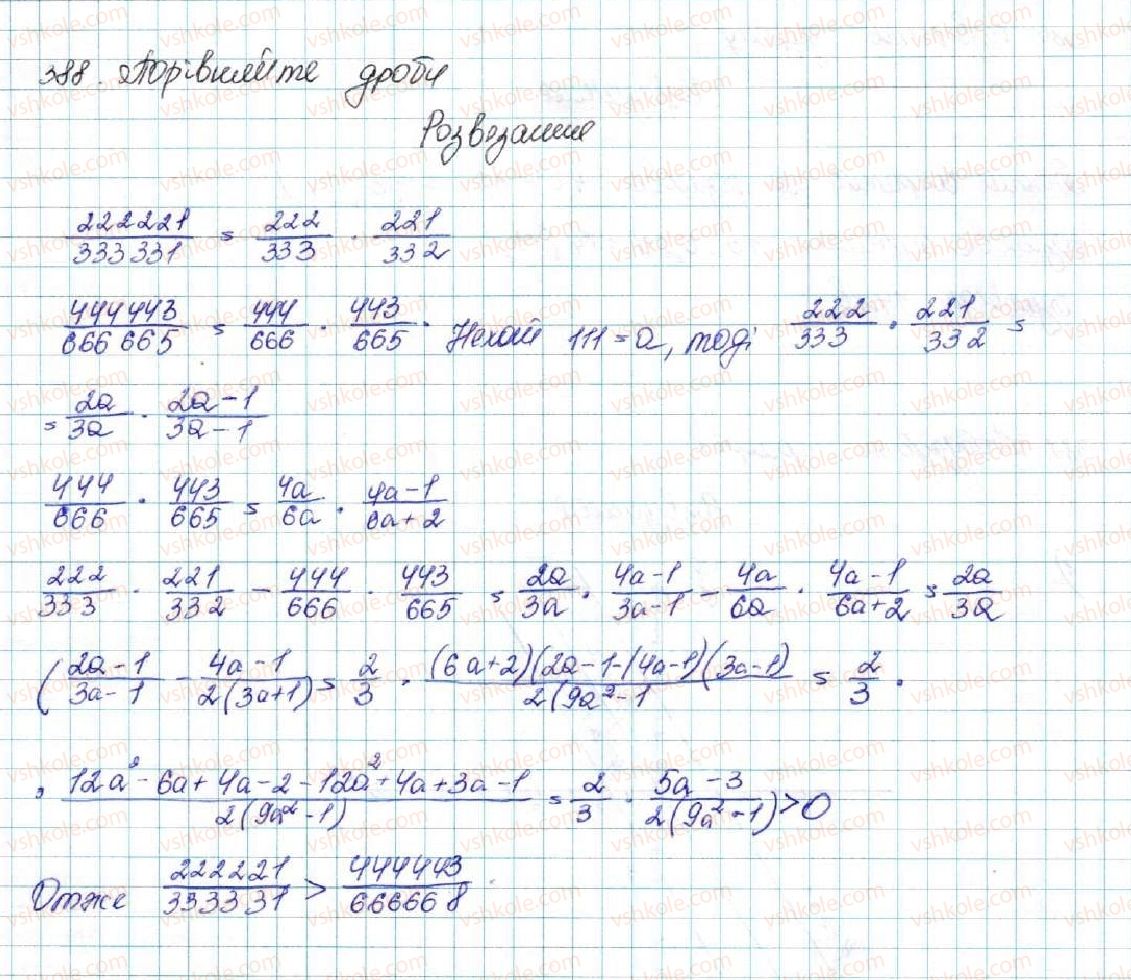 388. Порівняйте дроби
Розвязание
222221/333331 = 222/333 · 221/332
444443/666665 = 444/666 · 443/665 · Нехай 111 = a, тоді 222/333 · 221/332 =
= 2a/3a · 2a-1/3a-1
444/666 · 443/665 = 4a/6a · 4a-1/6a+2
222/333 · 221/332 - 444/666 · 443/665 = 2a/3a · 4a-1/3a-1 - 4a/6a · 4a-1/6a+2 = 2a/3a
(2a-1/3a-1 - 4a-1/2(3a+1) = 2/3 · (6a+2)(2a-1-(4a-1)(3a-1)/2(9a²-1 = 2/3 ·
· 12a² - 6a + 4a - 2 - 12a² + 4a + 3a - 1/2(9a² - 1) = 2/3 · 5a - 3/2(9a² - 1) > 0
Отже 222221/333331 > 444443/666668